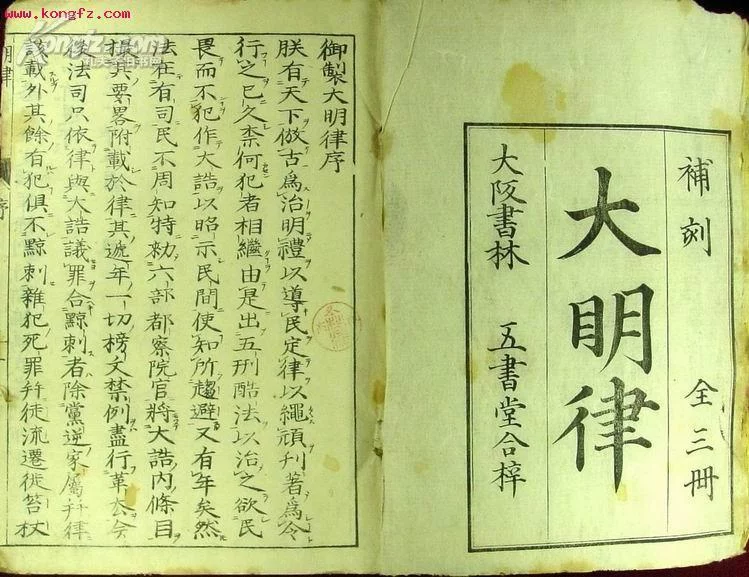 www.kongfz.com
補刻
全三冊
大明律
大阪書林
五書堂合梓
御製大明律序
朕有天下倣古爲治明禮以導民定律以繩頑刋著爲令
行之已久柰何犯者相繼由是出五刑酷法以治之欲民
畏而不犯作大誥以昭示民間使知所趨避又有年矣然
法在有司民不周知特勑六部都察院官將大誥內條目
撮其要畧附載於律其遞年一切榜文禁例盡行革去今
後法司只依律與大誥議罪合黥刺者除黨逆家屬幷律
該載外其餘有犯俱不黥刺雜犯死罪幷徒流遷徙笞杖
明律
序